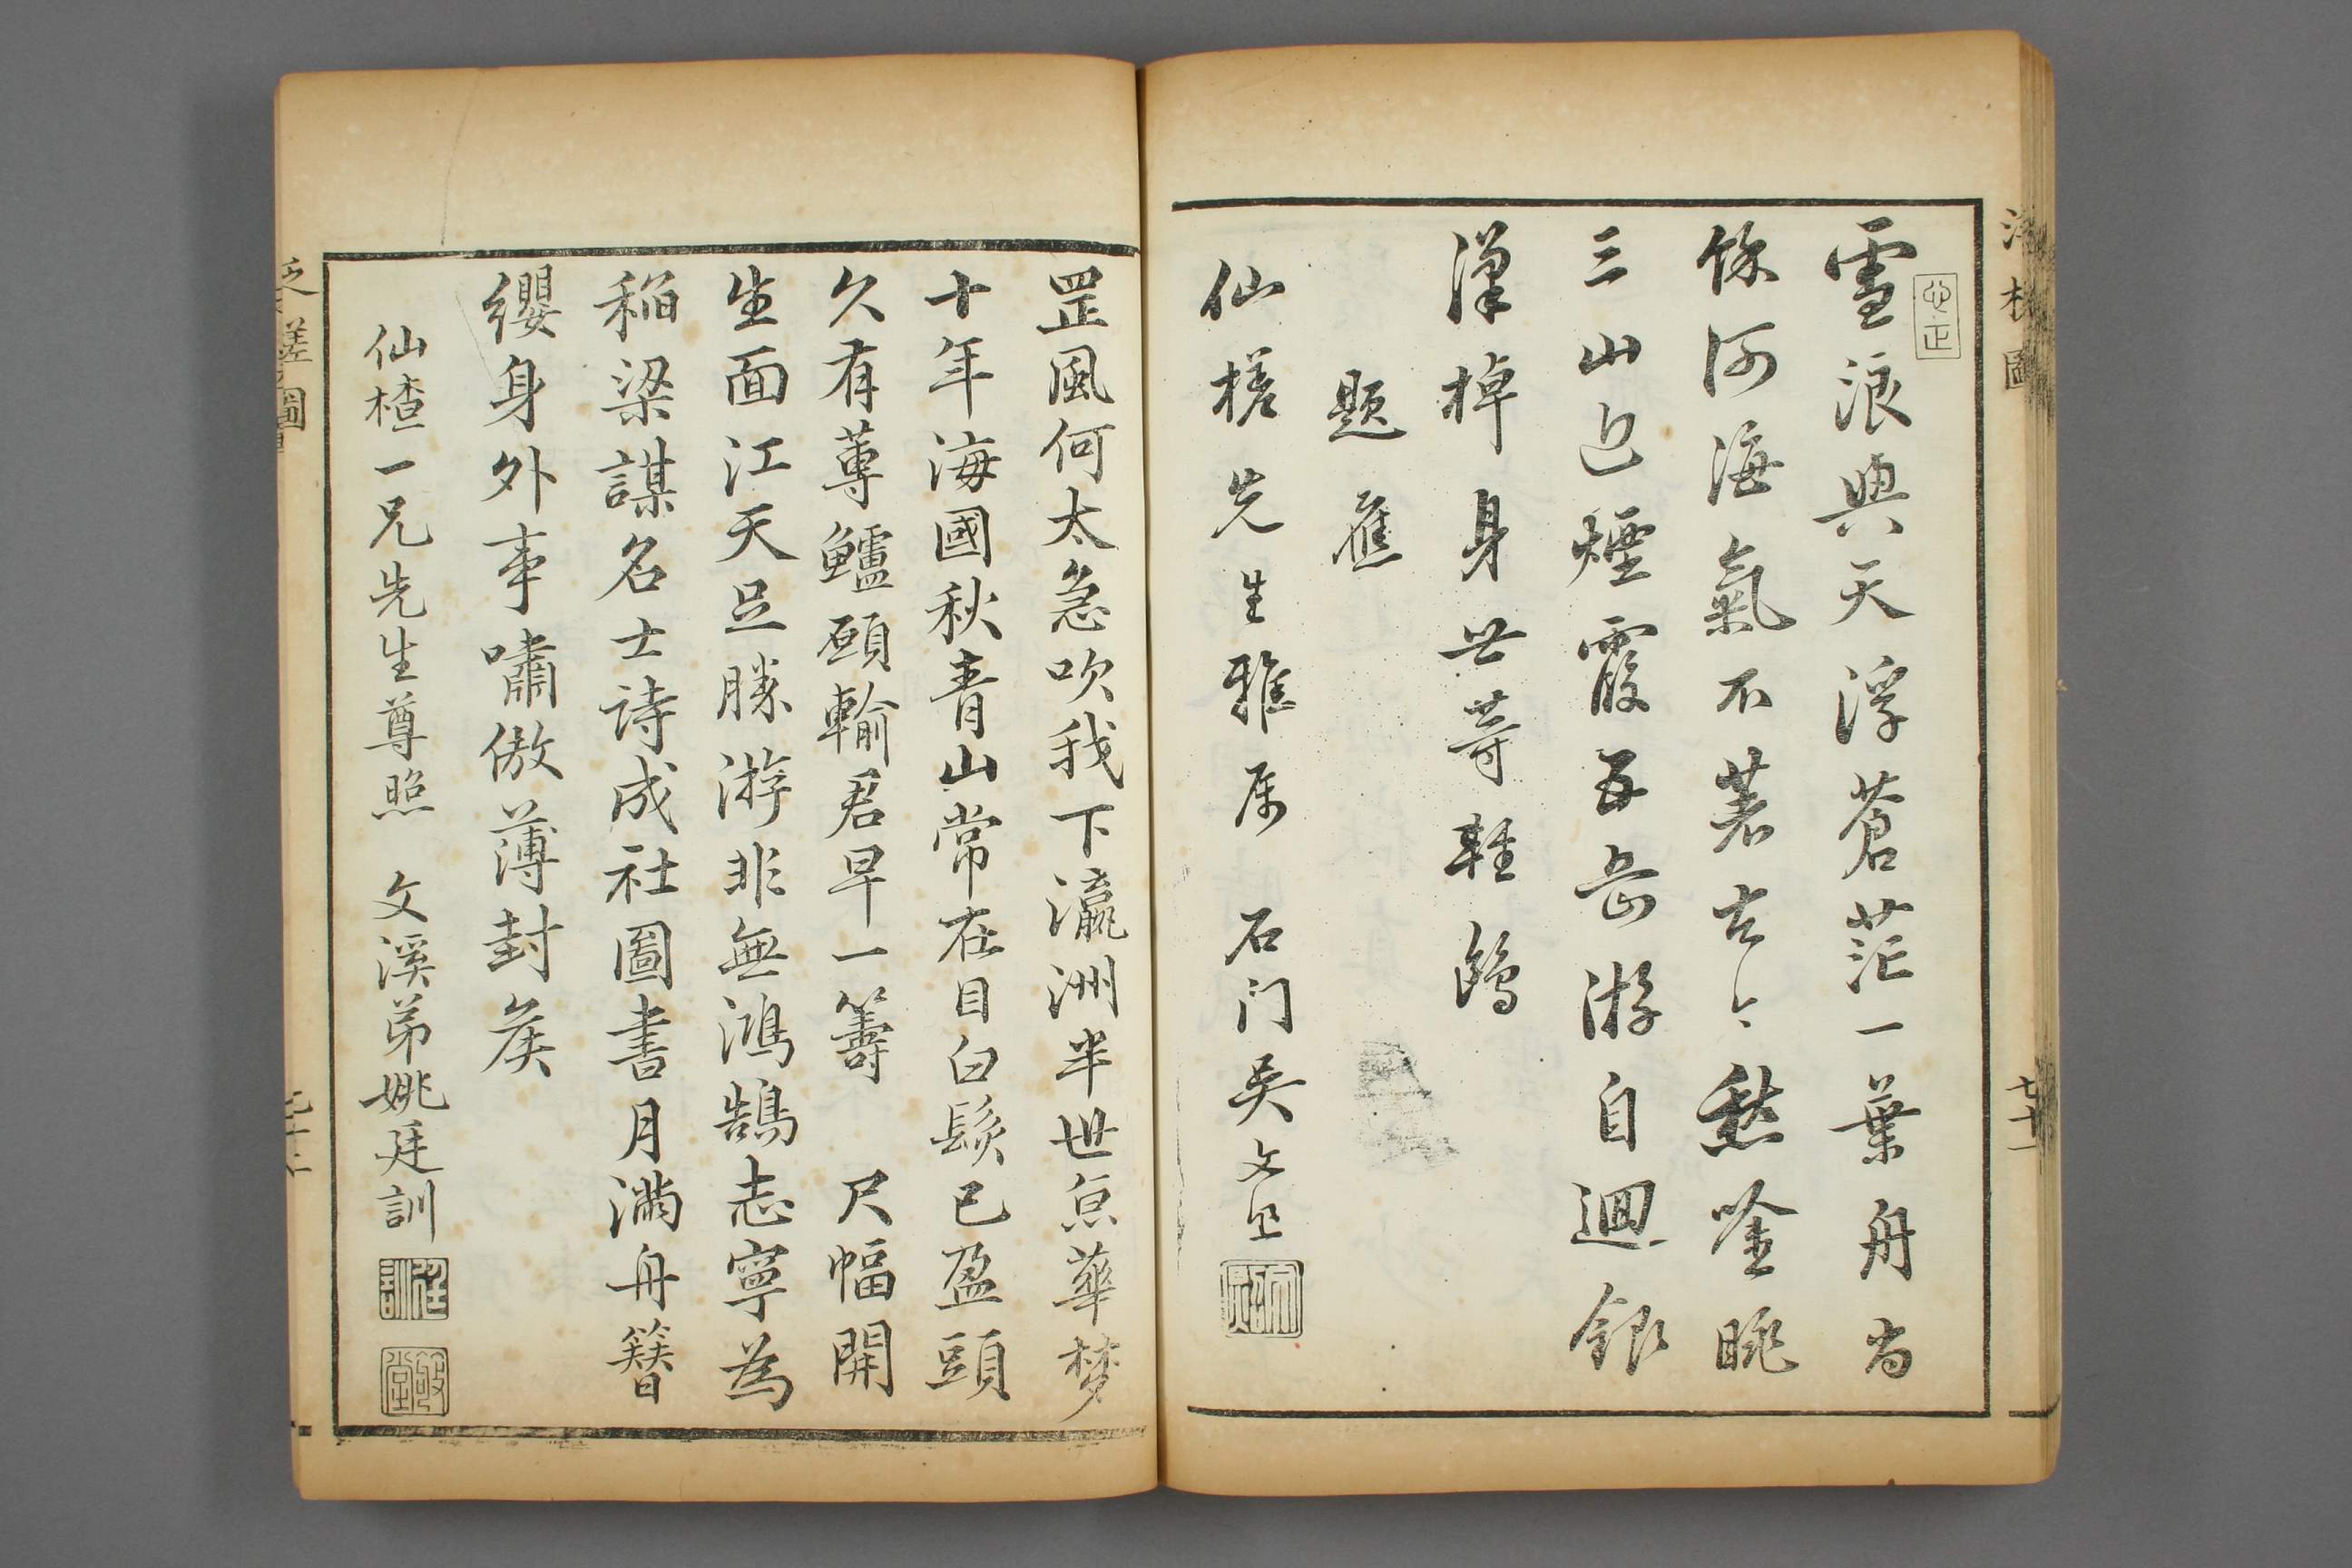 雪浪與天浮蒼茫一葉舟尚
餘河海氣不著古今愁登眺
三山近煙霞五岳游自迴銀
漢棹身世等輕鷗
題應
仙槎先生雅属 石门吴文照
罡風何太急吹我下瀛洲半世京華梦
十年海國秋青山常在目白髮已盈頭
久有蓴鱸願輸君早一籌 尺幅開
生面江天足勝游非無鴻鵠志寧為
稻粱謀名士詩成社圖書月滿舟簪
纓身外事嘯傲薄封矦
仙楂一兄先生尊照 文溪弟姚廷訓
泛槎圖